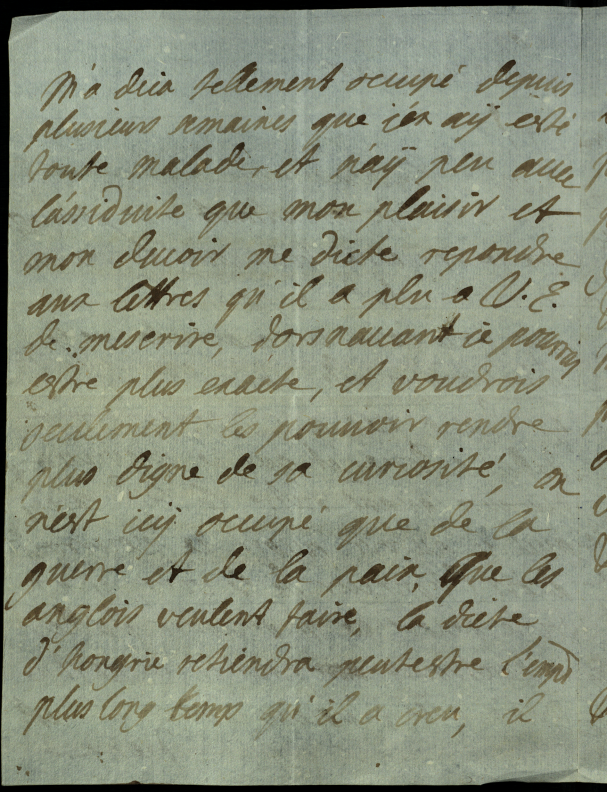 m'a deia tellement occupé depuis
plusieurs semaines que j'en aÿ esté
toute malade, et n'aÿ peu avec
l'assiduite que mon plaisir et
mon devoir me dicte repondre
aux lettres qu'il a plu a V. E.
de m'escrire, dorsnauant je pourrai
estre plus exacte, et voudrois
seulement les pouuoir rendre
plus digne de sa curiosité, on
n'est icÿ occupé que de la
guerre et de la paix, que les
anglois veulent faire, la diete
d'hongrie retiendra peutestre l'emp
plus long temp qu'il a creu, il